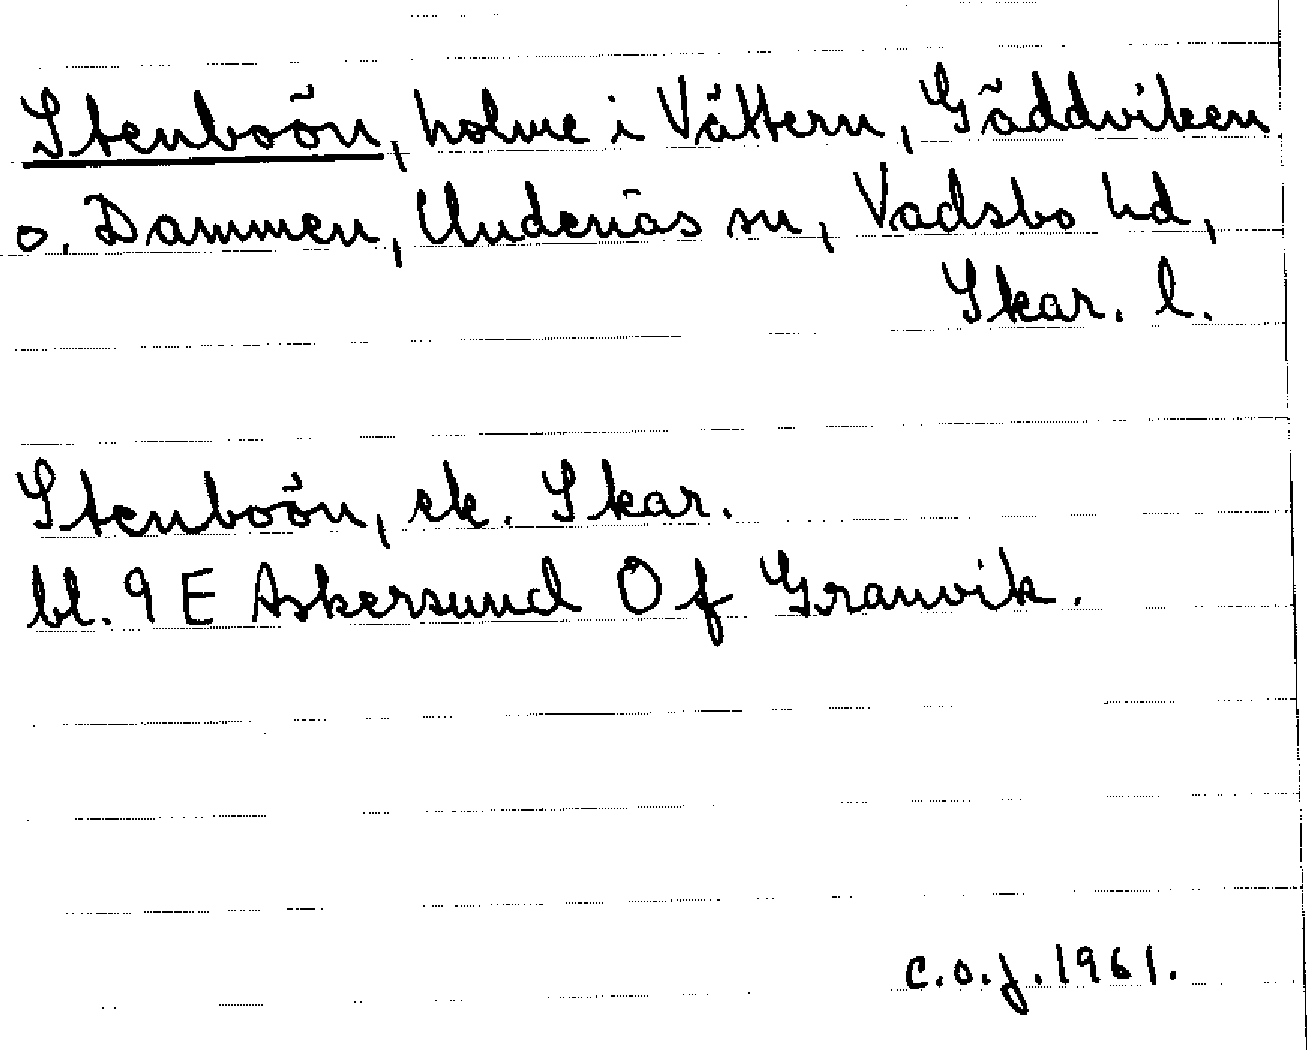 Stenboön, holme i Vättern, Gäddviken
o. Dammen, Undenäs sn, Vadsbo hd,
Skar. l.
Stenboön, ek. Skar.
bl. 9 E Askersund O f Granvik.
C.O.J. 1961.